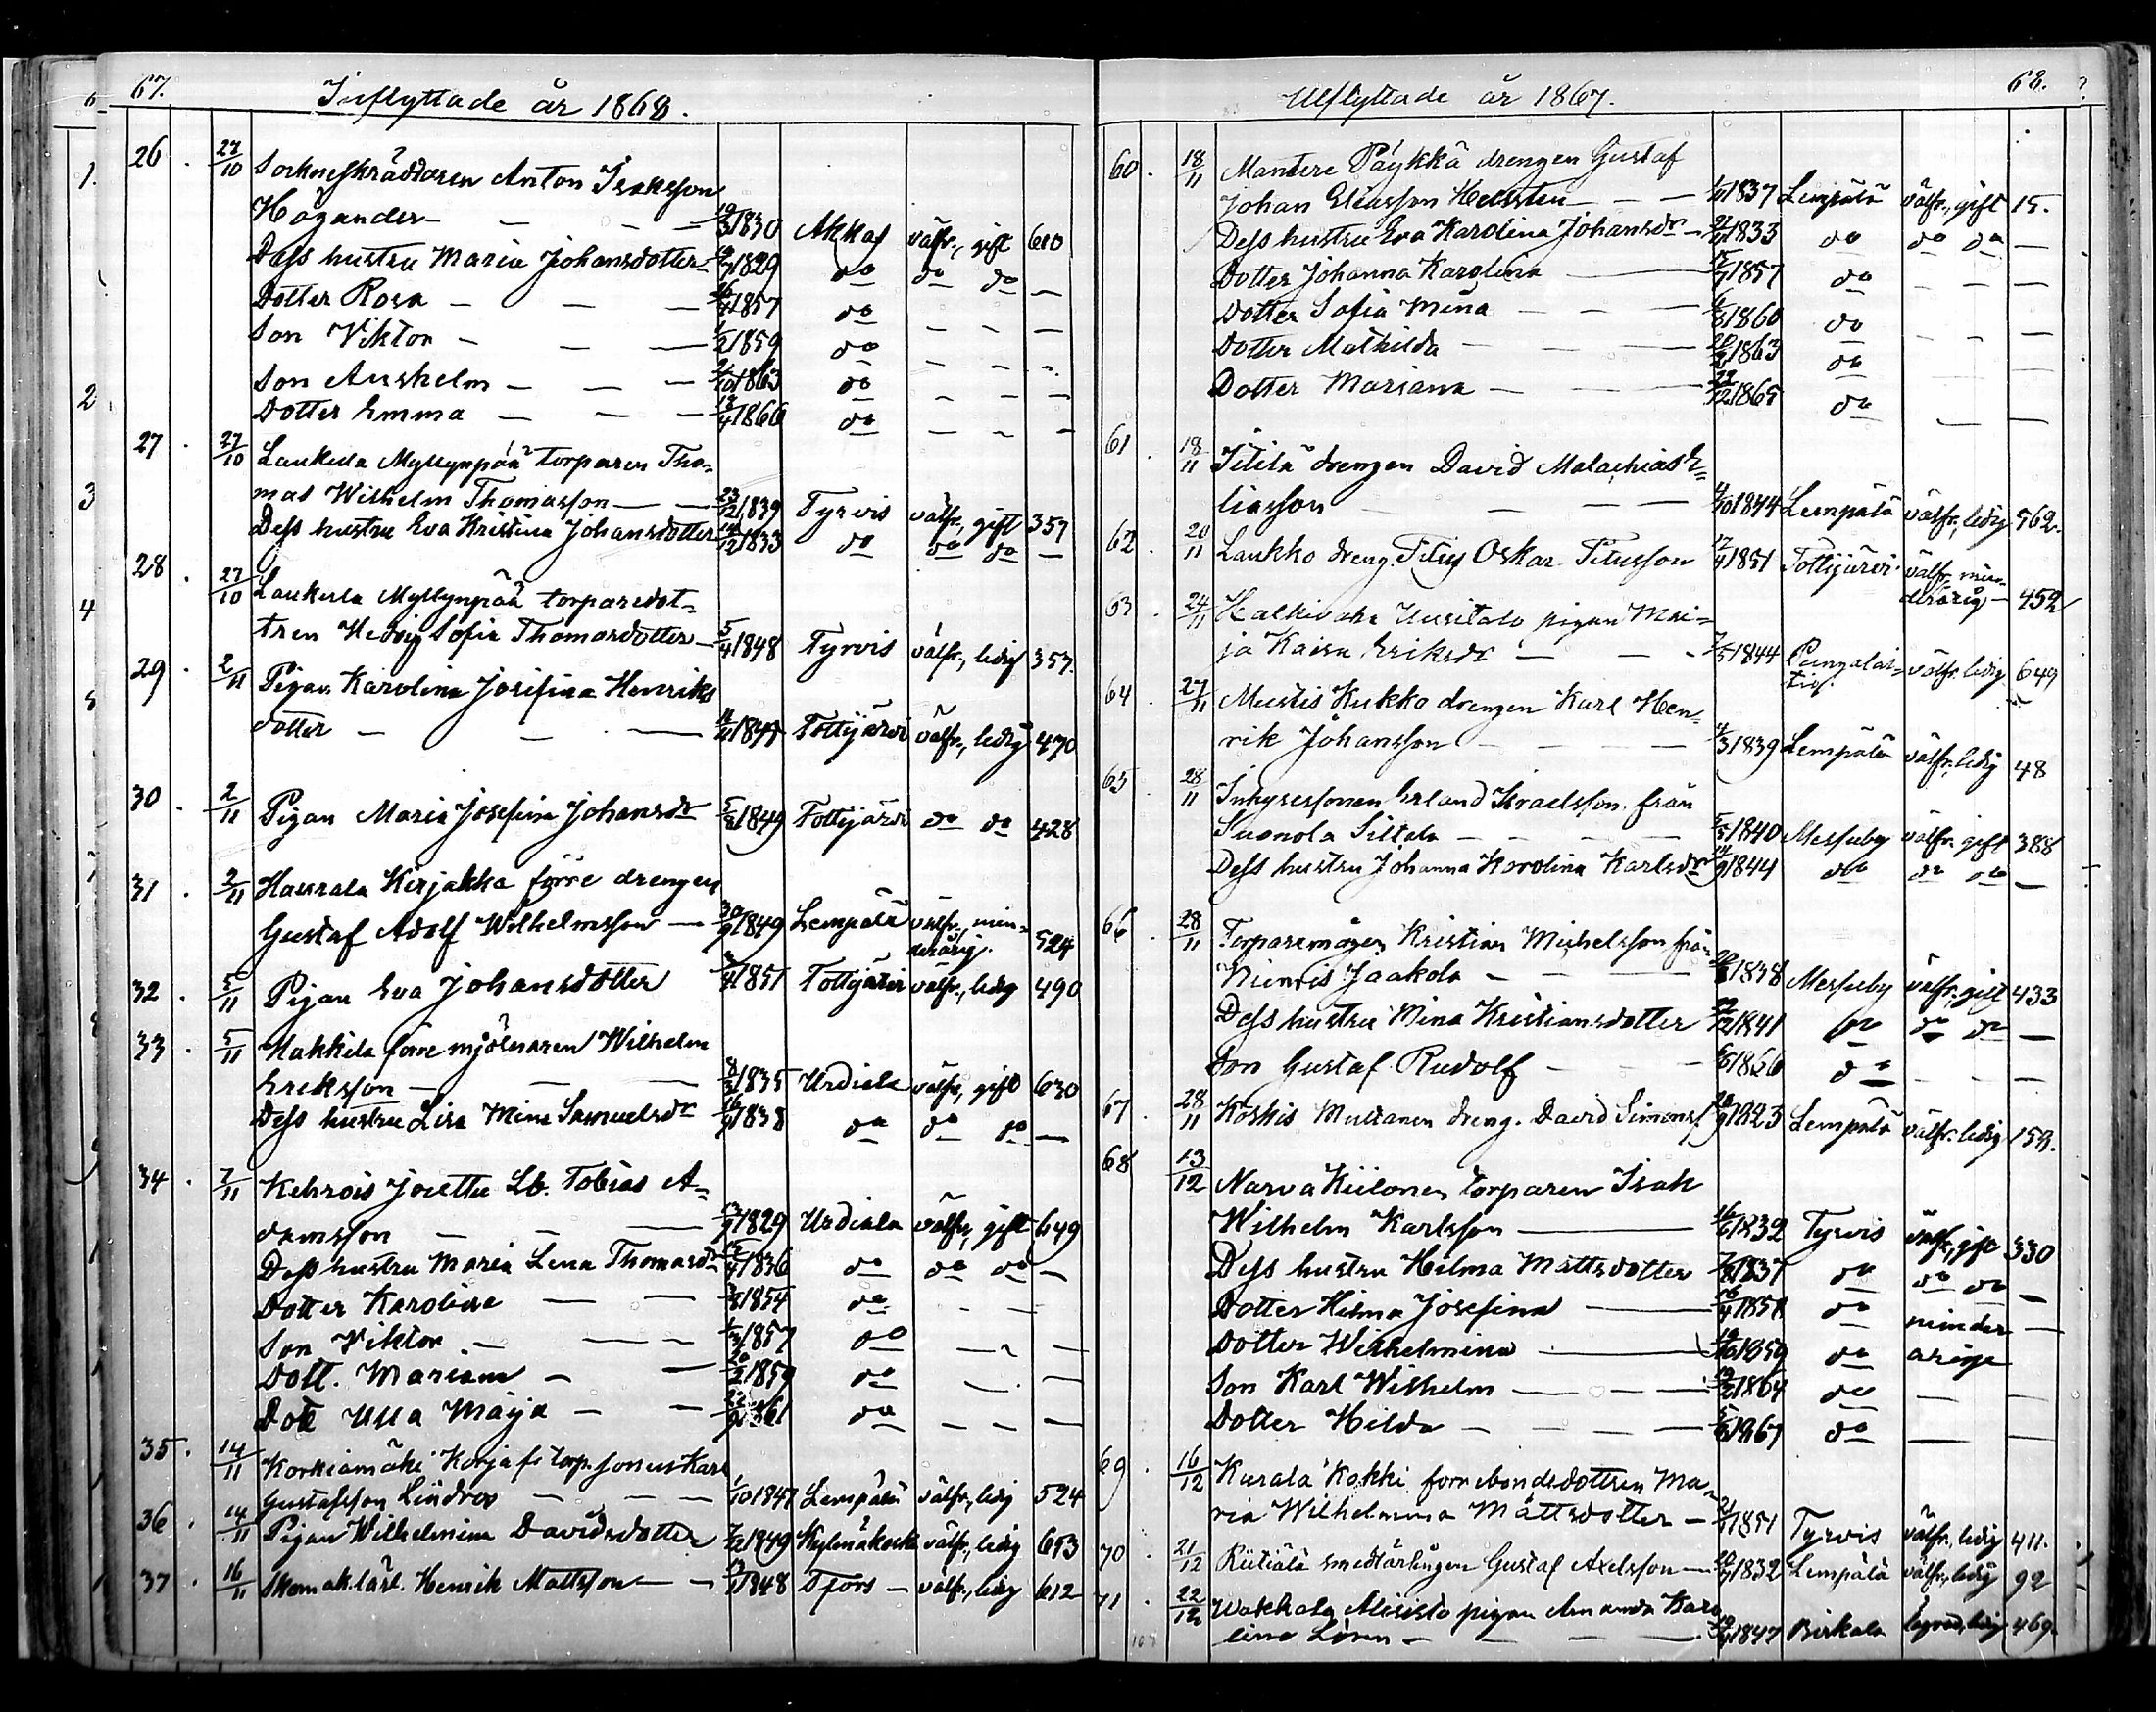 67.
Inflyttade år 1868.
26. 27/10 Sockneskräddaren Anton Isaksson
Högander — 1830 Akkas välfr., gift 610
Dess hustru Maria Johansdotter 1829 do do do —
Dotter Rosa — 1857 do — —
Son Viktor — 1/2 1859 do — —
Son Anshelm — 1863 do — —
Dotter Emma — 1866 do — —
27. 27/10 Laukula Myllynpää torparen Tho-
mas Wilhelm Thomasson — 23/12 1839 Tyrvis välfr., gift 357
Dess hustru Eva Kristina Johansdotter 14/12 1833 do do do —
28. 27/10 Laukula Myllynpää torparedot-
tren Hedvig Sofia Thomasdotter — 5/4 1848 Tyrvis välfr., ledig 357.
29. 2/11 Pigan Karolina Josefina Henriks
dotter — Tottijärvi välfr., ledig 470
30. 2/11 Pigan Maria Josefina Johansdr 1849 Tottijärvi do do 428
31. 2/11 Haurala Kirjakka förre drengen
Gustaf Adolf Wilhelmsson — 30/9 1849 Lempälä välfr., min-
derårig. 524
32. 5/11 Pigan Eva Johansdotter 1851 Tottijärvi välfr., ledig 490
33. 5/11 Hakkila förre mjölnaren Wilhelm
Eriksson — 1835 Urdiala välfr., gift 630
Dess hustru Lisa Mina Samuelsdr 16/9 1838 do do do —
34. 7/11 Kehrois Jouttu Lb. Tobias A-
damsson — 1829 Urdiala välfr., gift 649
Dess hustru Maria Lena Thomasdr 1836 do do do —
Dotter Karolina — 1854 do — —
Son Viktor — 1857 do — —
Dott. Mariana — 20/2 1859 do — —
Dott Ulla Maija — 1861 do — —
35. 14/11 Korkiamäki Korja f. torp. sonen Karl
Gustafsson Lindros — 1/10 1847 Lempälä välfr., ledig 524
36. 14/11 Pigan Wilhelmina Davidsdotter 7/12 1849 Kylmäkoski välfr., ledig 693
37. 16/11 Skomak.lärl. Henrik Mattsson — 1848 Tfors — välfr., ledig 612
68.
Utflyttade år 1867.
60. 18/11 Mantere Päykkä drengen Gustaf
Johan Eliasson Hellsten — 1837 Lempälä välfr., gift 15.
Dess hustru Eva Karolina Johansdr — 1833 do do do —
Dotter Johanna Karolina — 1857 do — —
Dotter Sofia Mina — 1860 do — —
Dotter Mathilda — 1863 do — —
Dotter Mariana — 22/12 1865 do — —
61. 18/11 Tiitilä drengen David Malachias E-
liasson — 1844 Lempälä välfr., ledig 562.
62. 20/11 Laukko dreng. Titus Oskar Titusson 1851 Tottijärvi välfr., min-
derårig — 452
63. 24/11 Halkivaha Uusitalo pigan Mai-
ja Kaisa Eriksdr — 1844 Pungalai-
tio. välfr. ledig 649
64. 27/11 Mustis Kukko drengen Karl Hen-
rik Johansson — 1839 Lempälä välfr. ledig 48
65. 28/11 Inhysessonen Erland Israelsson från
Suonola Siltala — 1840 Messuby välfr. gift 388
Dess hustru Johanna Karolina Karlsdr 1844 do do do —
66. 28/11 Torparemågen Kristian Michelsson från
Niemis Jaakola — 1838 Messuby välfr., gift 433
Dess hustru Mina Kristiansdotter 22/12 1841 do do do —
Son Gustaf Rudolf — 1866 do — —
67. 28/11 Koskis Multanen dreng. David Simonss. 1823 Lempälä välfr. ledig 159.
68. 13/12 Narva Kiilonen torparen Isak
Wilhelm Karlsson — 16/6 1832 Tyrvis välfr., gift 330
Dess hustru Hilma Mattsdotter 1837 do do do —
Dotter Hilma Josefina — 1858 do minder —
Dotter Wilhelmina — 1859 do årige
Son Karl Wilhelm — 1864 do — —
Dotter Hilda — 1867 do — —
69. 16/12 Kurala Kokki forrebondedottren Ma-
ria Wilhelmina Mattsdotter — 1851 Tyrvis välfr., ledig 411.
70. 21/12 Riitiälä smedlärlingen Gustaf Axelsson — 1832 Lempälä välfr., ledig 92
71. 22/12 Wakkala Alisisto pigan Amanda Karo
lina Loren — 1847 Birkala ledig 469.